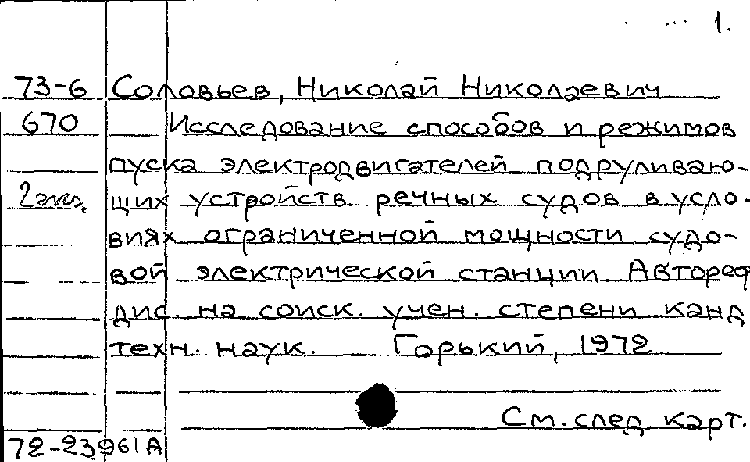 1.
73-6 Соловьев, Николай Николаевич
670 Исследование способов и режимов
пуска электродвигателей подруливаю-
2 экз. щих устройств речных судов в усло-
виях ограниченной мощности судо-
вой электрической станции. Автореф
дис на соиск. учен. степени канд
техн. наук. Горький, 1972
См. след. карт.
72-23961А